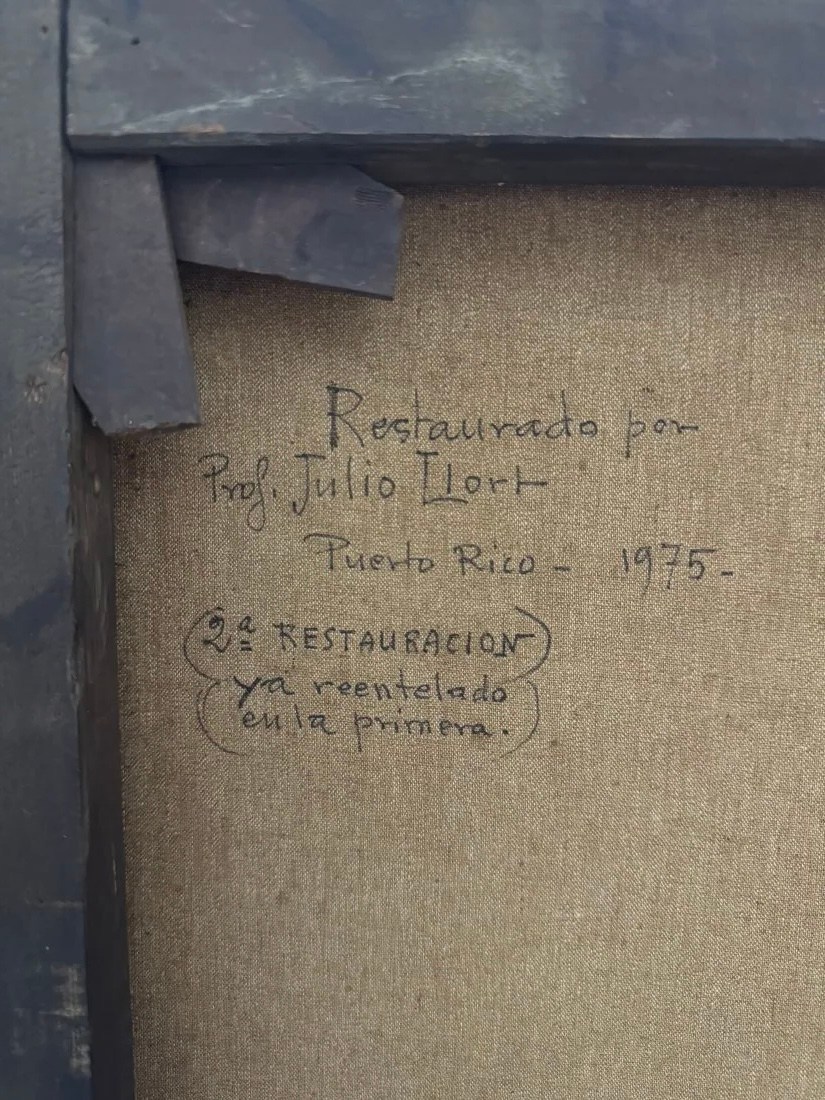 Restaurado por
Prof. Julio Llort
Puerto Rico - 1975-
(2ª RESTAURACION)
(ya reentelado
en la primera.)